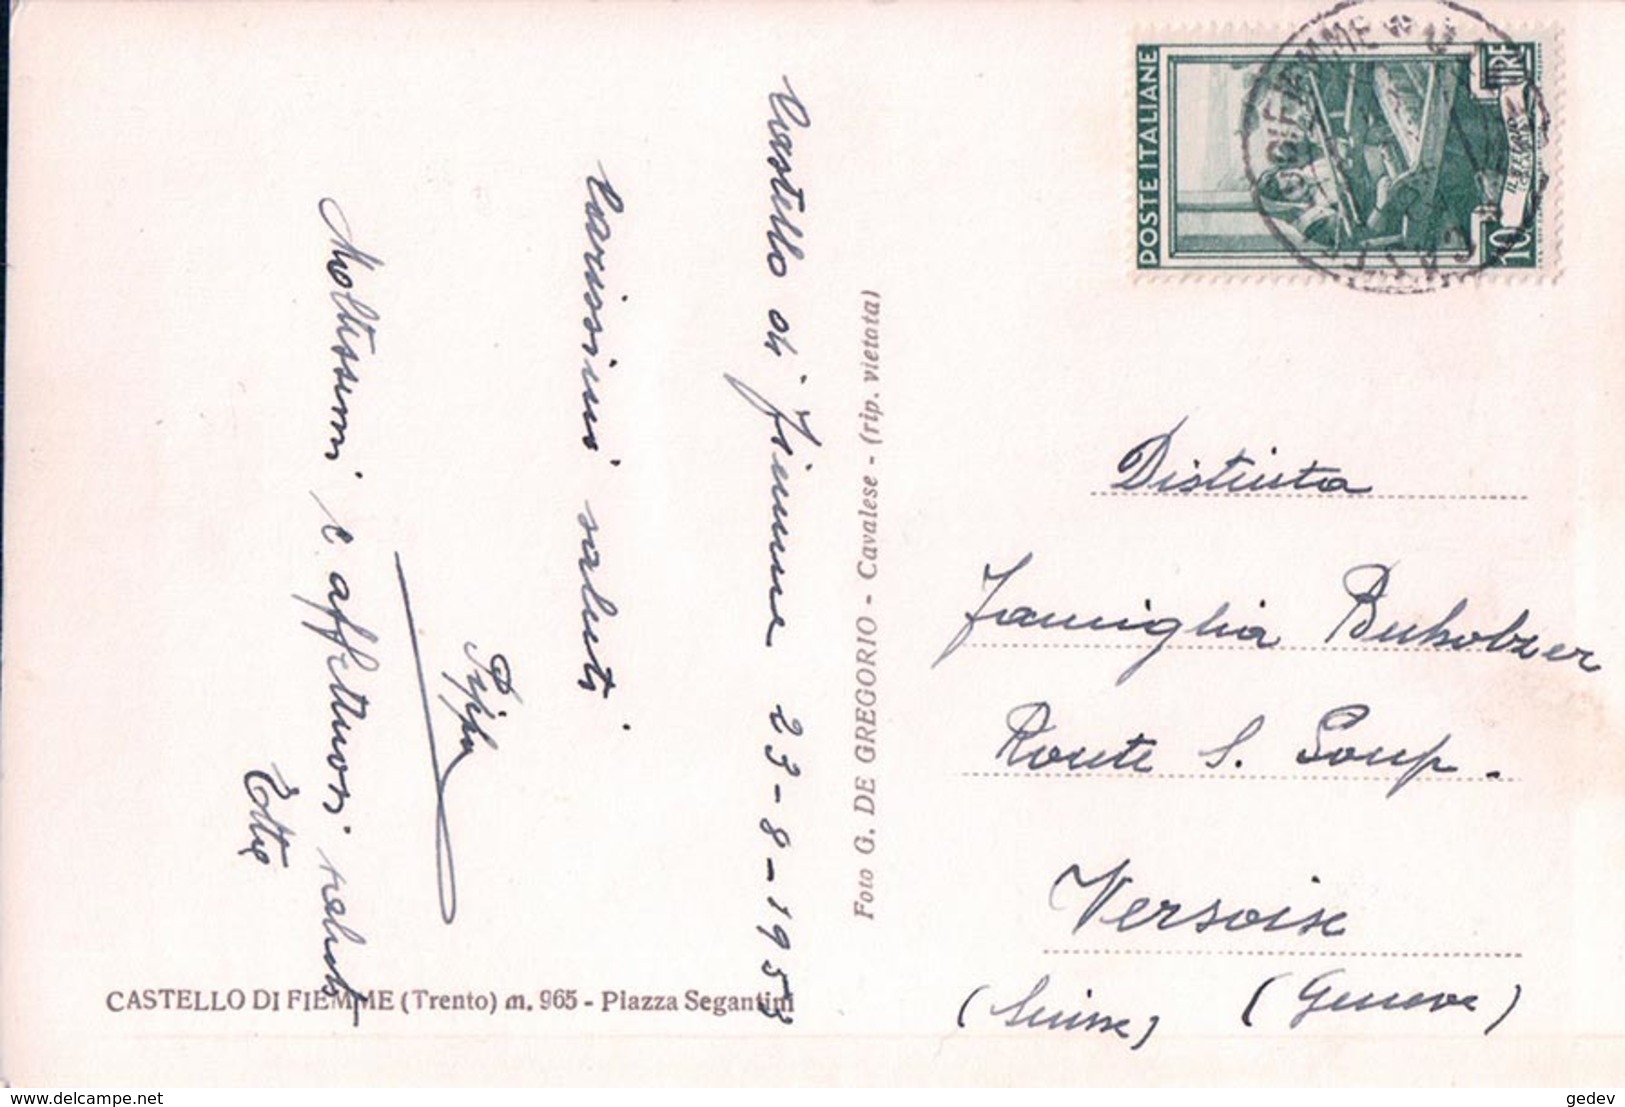 Castello di Fiemme 23-8-1953
Carissimi saluti
Pippo
Moltissimi e affettuosi saluti
Etta
Foto G. DE GREGORIO - Cavalese - (rip. vietata)
CASTELLO DI FIEMME (Trento) m. 965 - Piazza Segantini
POSTE ITALIANE
10 LIRE
Distinta
Famiglia Buholzer
Route S. Loup.
Versoix
(Suisse) (Geneve)
delcampe.net
gedev